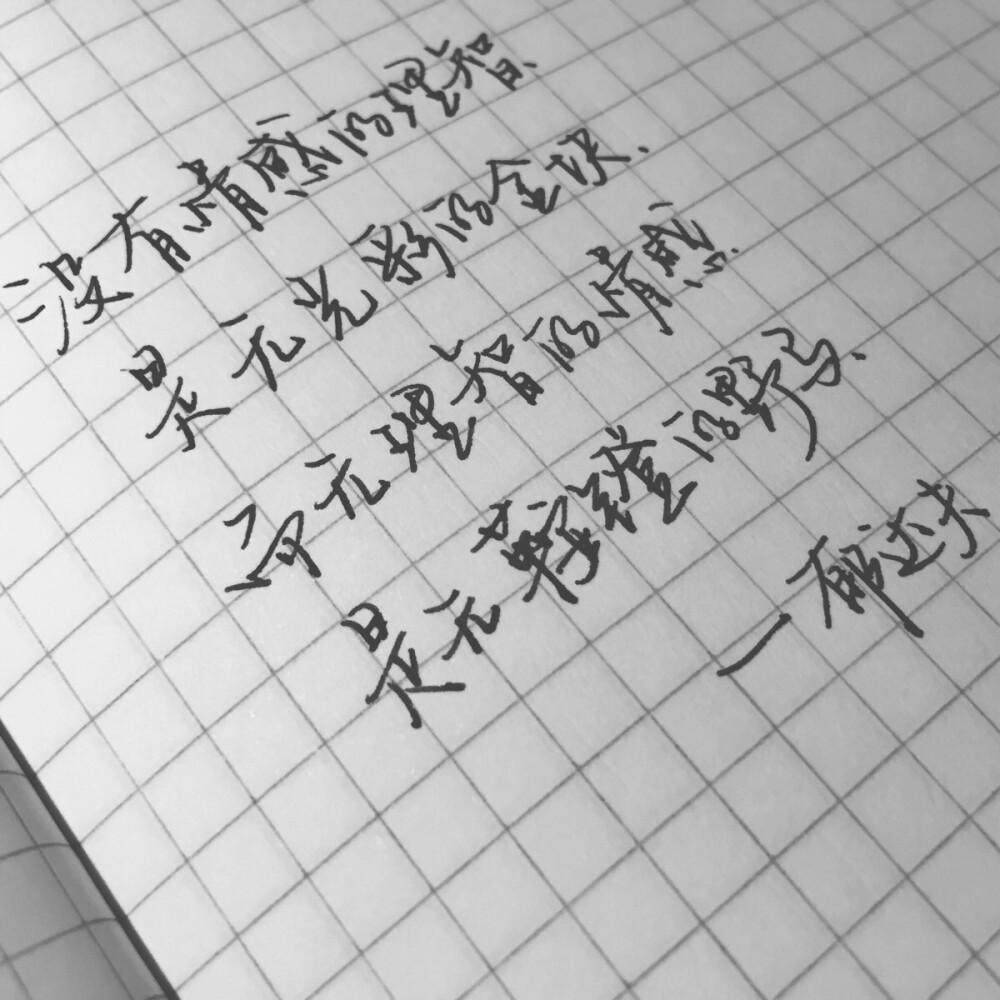 没有情感的理智、
是无光彩的金块.
而无理智的情感.
是无鞍镫的野马、
—郁达夫